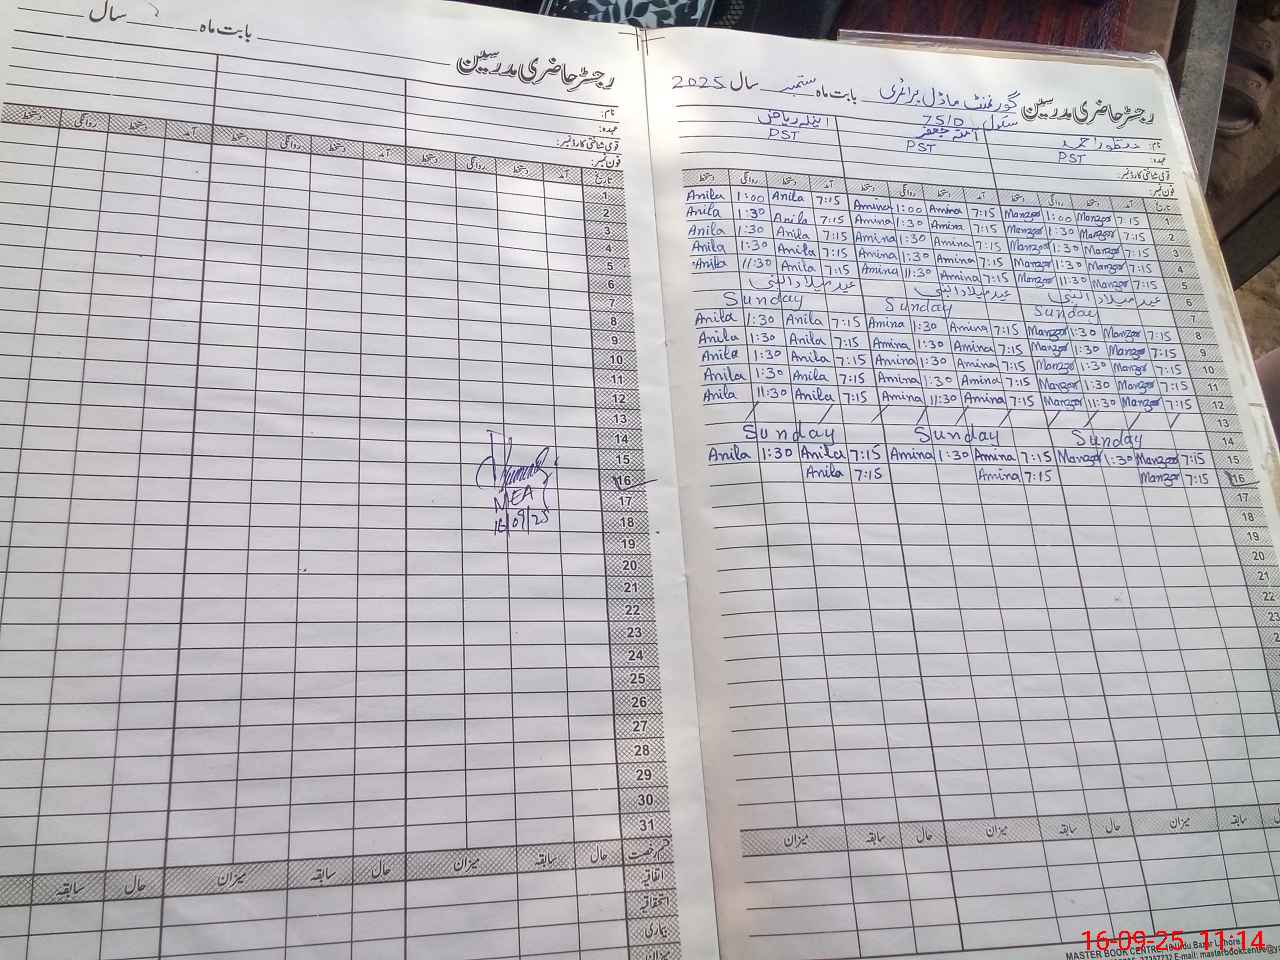 بابت ماہ سال
رجسٹر حاضری مدرسین
نام:
عہدہ:
قومی شناختی کارڈ نمبر:
فون نمبر:
تاریخ آمد دستخط روانگی دستخط آمد دستخط روانگی دستخط آمد دستخط روانگی دستخط
1
2
3
4
5
6
7
8
9
10
11
12
13
14
15
16
17
18
19
20
21
22
23
24
25
26
27
28
29
30
31
MEA
16/09/25
قسم رخصت حال سابقہ میزان حال سابقہ میزان حال سابقہ
اتفاقیہ
استحقاقیہ
بیماری
میزان
رجسٹر حاضری مدرسین گورنمنٹ ماڈل پرائمری بابت ماہ ستمبر سال 2025
سکول 75/D
نام: منظور احمد آمنہ جعفر انیلہ ریاض
عہدہ: PST PST PST
قومی شناختی کارڈ نمبر:
فون نمبر:
تاریخ آمد دستخط روانگی دستخط آمد دستخط روانگی دستخط آمد دستخط روانگی دستخط
Anila 1:00 Anila 7:15 Amina 1:00 Amina 7:15 Manzor 1:00 Manzor 7:15 1
Anila 1:30 Anila 7:15 Amina 1:30 Amina 7:15 Manzor 1:30 Manzor 7:15 2
Anila 1:30 Anila 7:15 Amina 1:30 Amina 7:15 Manzor 1:30 Manzor 7:15 3
Anila 1:30 Anila 7:15 Amina 1:30 Amina 7:15 Manzor 1:30 Manzor 7:15 4
Anila 11:30 Anila 7:15 Amina 11:30 Amina 7:15 Manzor 11:30 Manzor 7:15 5
عید میلاد النبی عید میلاد النبی عید میلاد النبی 6
Sunday Sunday Sunday 7
Anila 1:30 Anila 7:15 Amina 1:30 Amina 7:15 Manzor 1:30 Manzor 7:15 8
Anila 1:30 Anila 7:15 Amina 1:30 Amina 7:15 Manzor 1:30 Manzor 7:15 9
Anila 1:30 Anila 7:15 Amina 1:30 Amina 7:15 Manzor 1:30 Manzor 7:15 10
Anila 1:30 Anila 7:15 Amina 1:30 Amina 7:15 Manzor 1:30 Manzor 7:15 11
Anila 11:30 Anila 7:15 Amina 11:30 Amina 7:15 Manzor 11:30 Manzor 7:15 12
13
Sunday Sunday Sunday 14
Anila 1:30 Anila 7:15 Amina 1:30 Amina 7:15 Manzor 1:30 Manzor 7:15 15
Anila 7:15 Amina 7:15 Manzor 7:15 16
17
18
19
20
21
22
23
حال سابقہ میزان حال سابقہ میزان حال سابقہ میزان
MASTER BOOK CENTRE, 10 Urdu Bazar Lahore
16-09-25 11:14